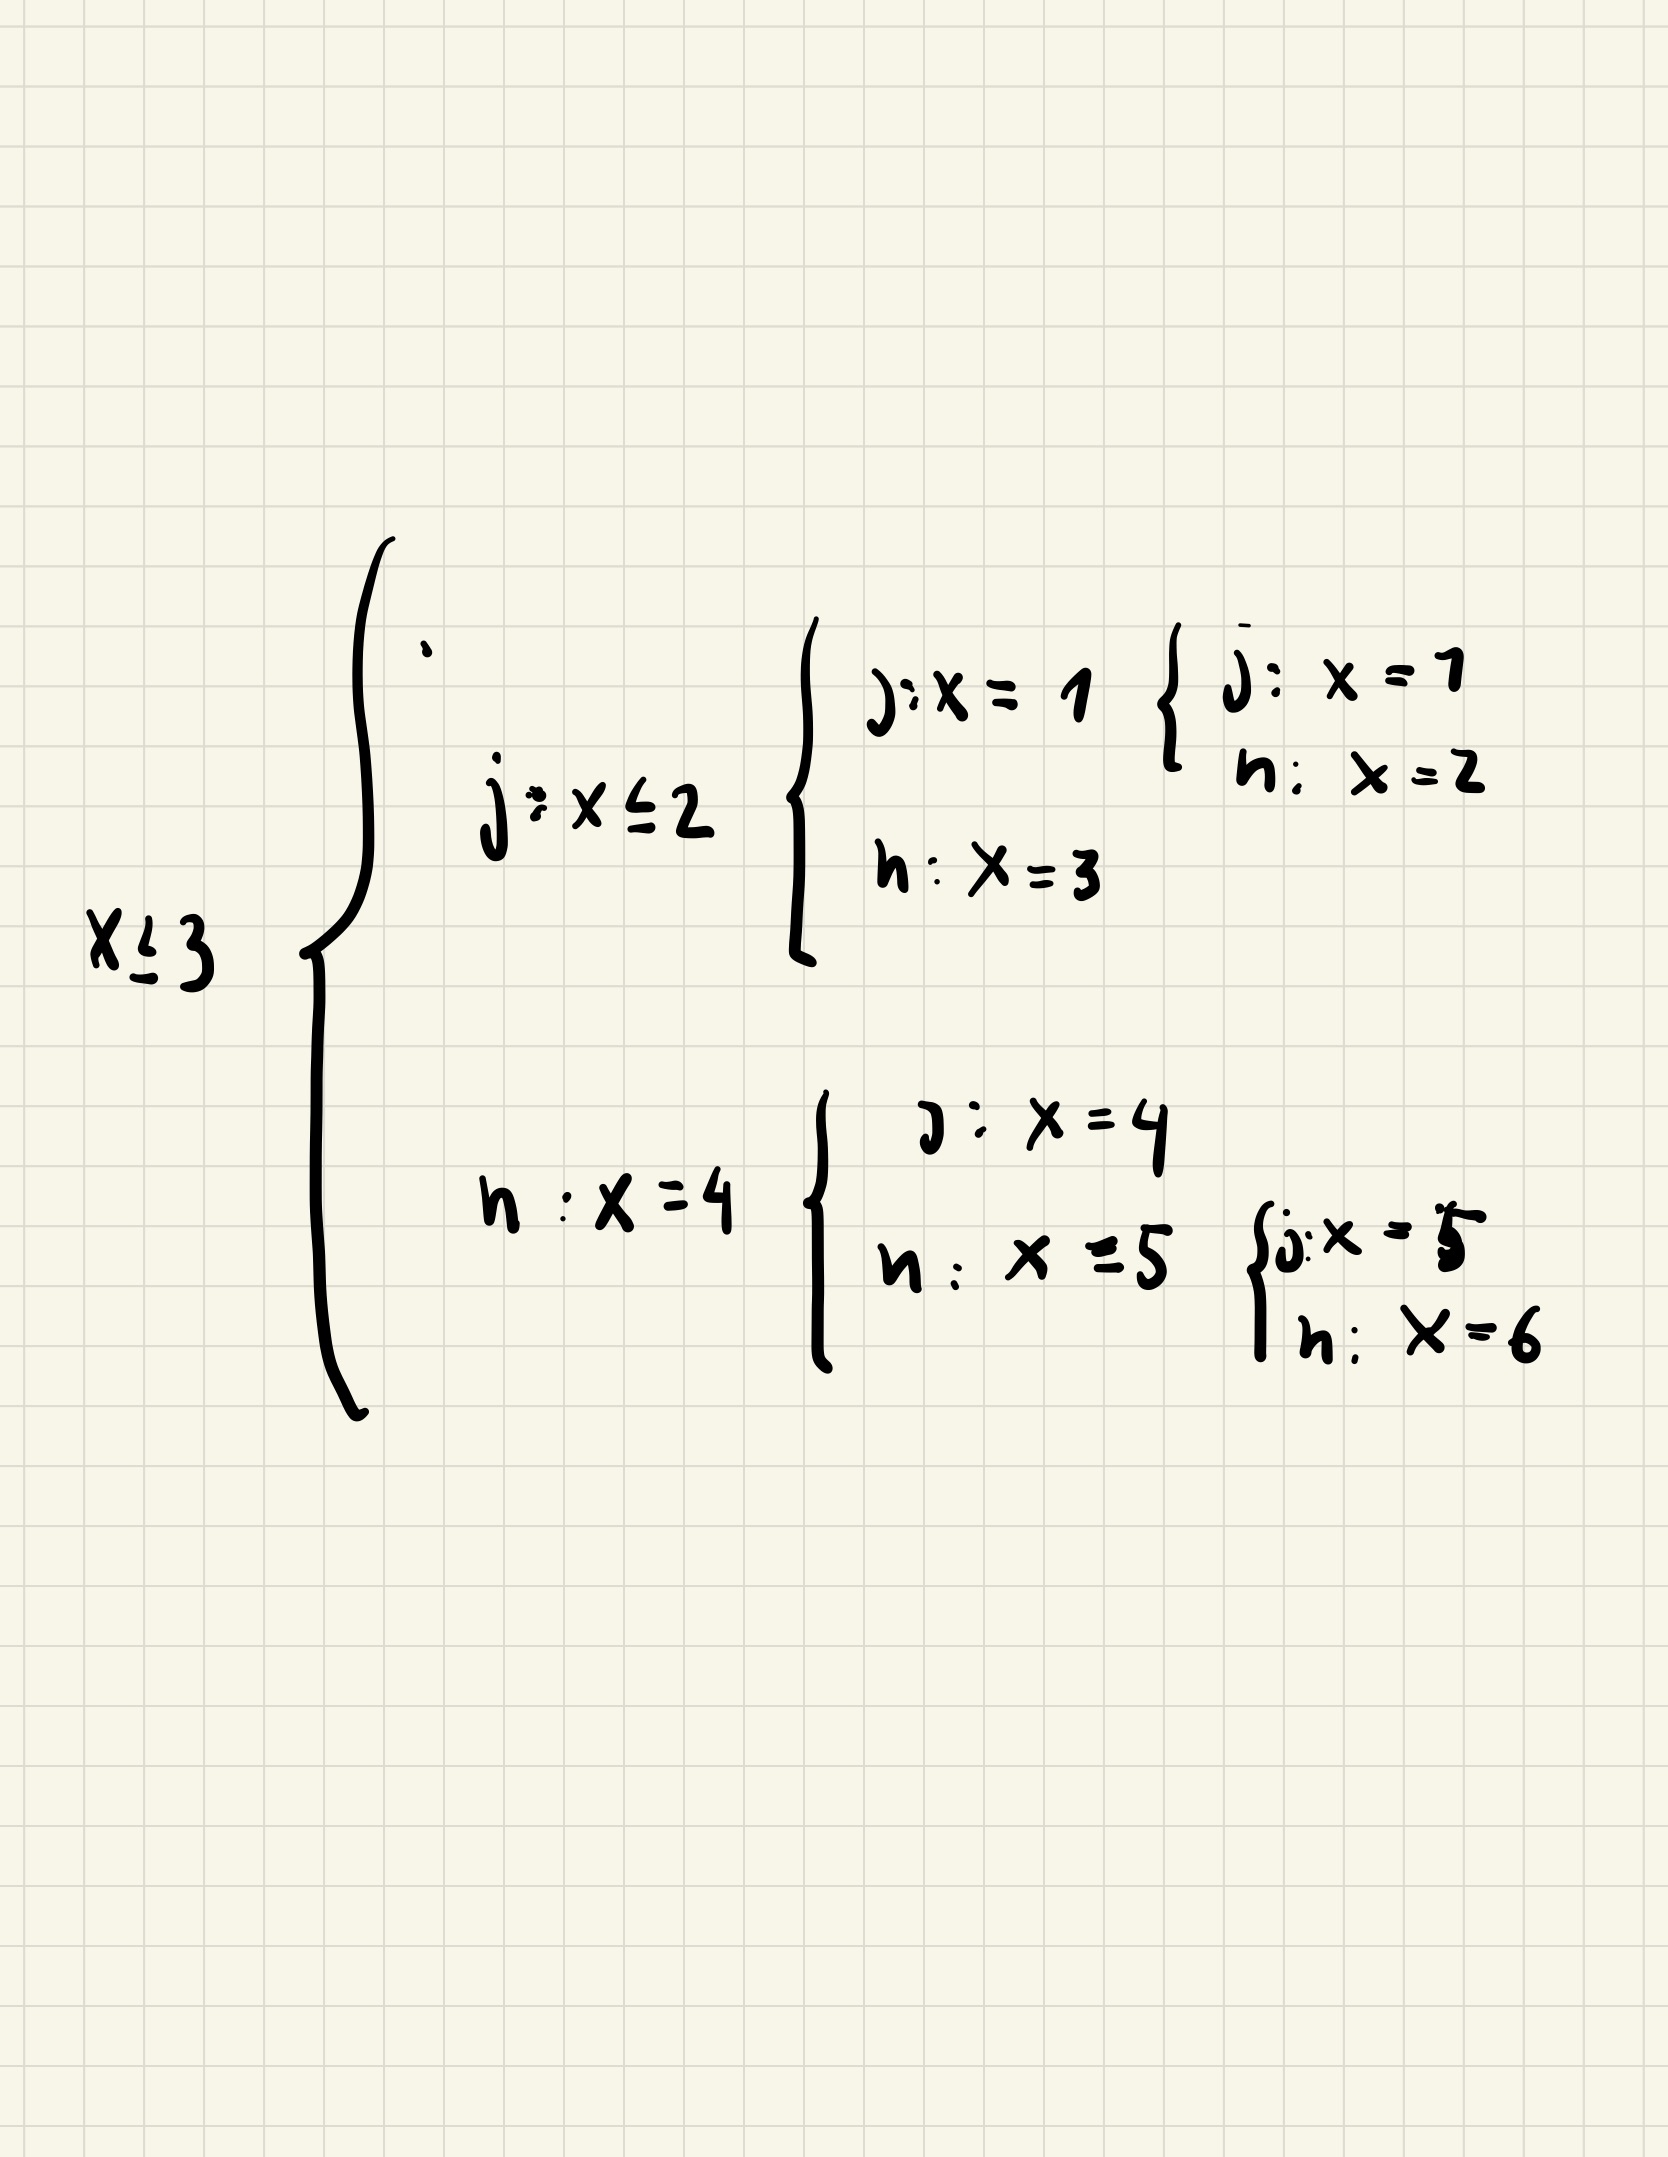 x ≤ 3
j: x ≤ 2
j: x = 1
j: x = 1
n: x = 2
n: x = 3
n: x = 4
j: x = 4
n: x = 5
j: x = 5
n: x = 6